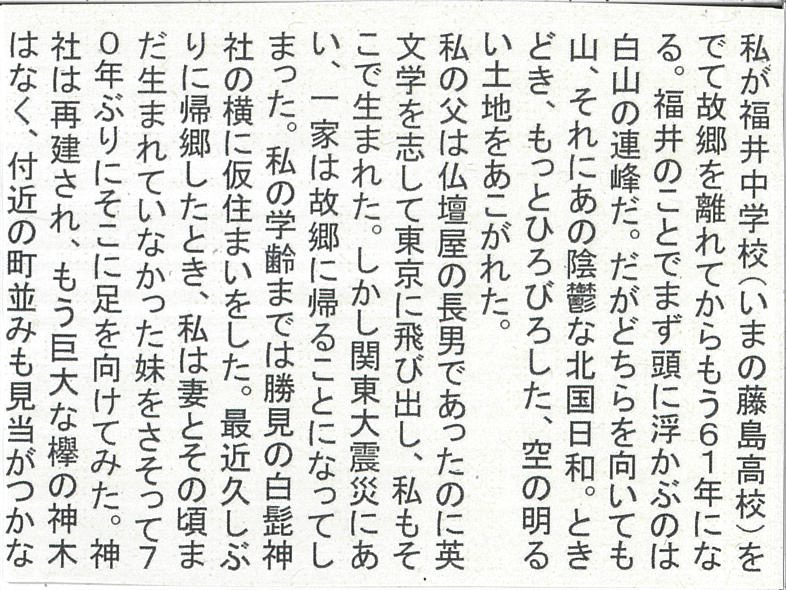 私が福井中学校（いまの藤島高校）を
でて故郷を離れてからもう６１年にな
る。福井のことでまず頭に浮かぶのは
白山の連峰だ。だがどちらを向いても
山、それにあの陰鬱な北国日和。とき
どき、もっとひろびろした、空の明る
い土地をあこがれた。
私の父は仏壇屋の長男であったのに英
文学を志して東京に飛び出し、私もそ
こで生まれた。しかし関東大震災にあ
い、一家は故郷に帰ることになってし
まった。私の学齢までは勝見の白髭神
社の横に仮住まいをした。最近久しぶ
りに帰郷したとき、私は妻とその頃ま
だ生まれていなかった妹をさそって７
０年ぶりにそこに足を向けてみた。神
社は再建され、もう巨大な欅の神木
はなく、付近の町並みも見当がつかな